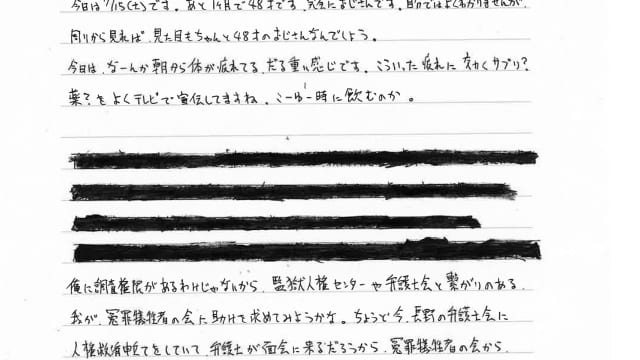 今日は7/15(土)です。あと1ヶ月で48才です。完全におじさんです。自分ではよくわかりませんが、
周りから見れば、見た目もちゃんと48才のおじさんなんでしょう。
今日は、なーんか朝から体が疲れてる、だる重い感じです。こういった疲れに効くサプリ?
薬?をよくテレビで宣伝してますね、こーゆー時に飲むのか。
俺に調査権限があるわけじゃないから、監獄人権センターや弁護士会と繋がりのある、
我が、冤罪犠牲者の会に助けて求めてみようかな。ちょうど今、長野の弁護士会に
人権救済申立てをしていて、弁護士が面会に来るだろうから、冤罪犠牲者の会から